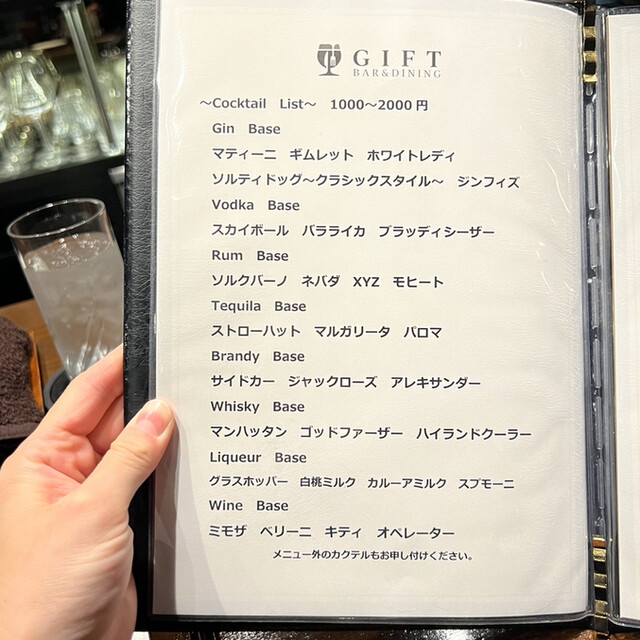 GIFT
BAR&DINING
～Cocktail List～ 1000～2000円
Gin Base
マティーニ ギムレット ホワイトレディ
ソルティドッグ～クラシックスタイル～ ジンフィズ
Vodka Base
スカイボール バラライカ ブラッディシーザー
Rum Base
ソルクバーノ ネバダ XYZ モヒート
Tequila Base
ストローハット マルガリータ パロマ
Brandy Base
サイドカー ジャックローズ アレキサンダー
Whisky Base
マンハッタン ゴッドファーザー ハイランドクーラー
Liqueur Base
グラスホッパー 白桃ミルク カルーアミルク スプモーニ
Wine Base
ミモザ ベリーニ キティ オペレーター
メニュー外のカクテルもお申し付けください。